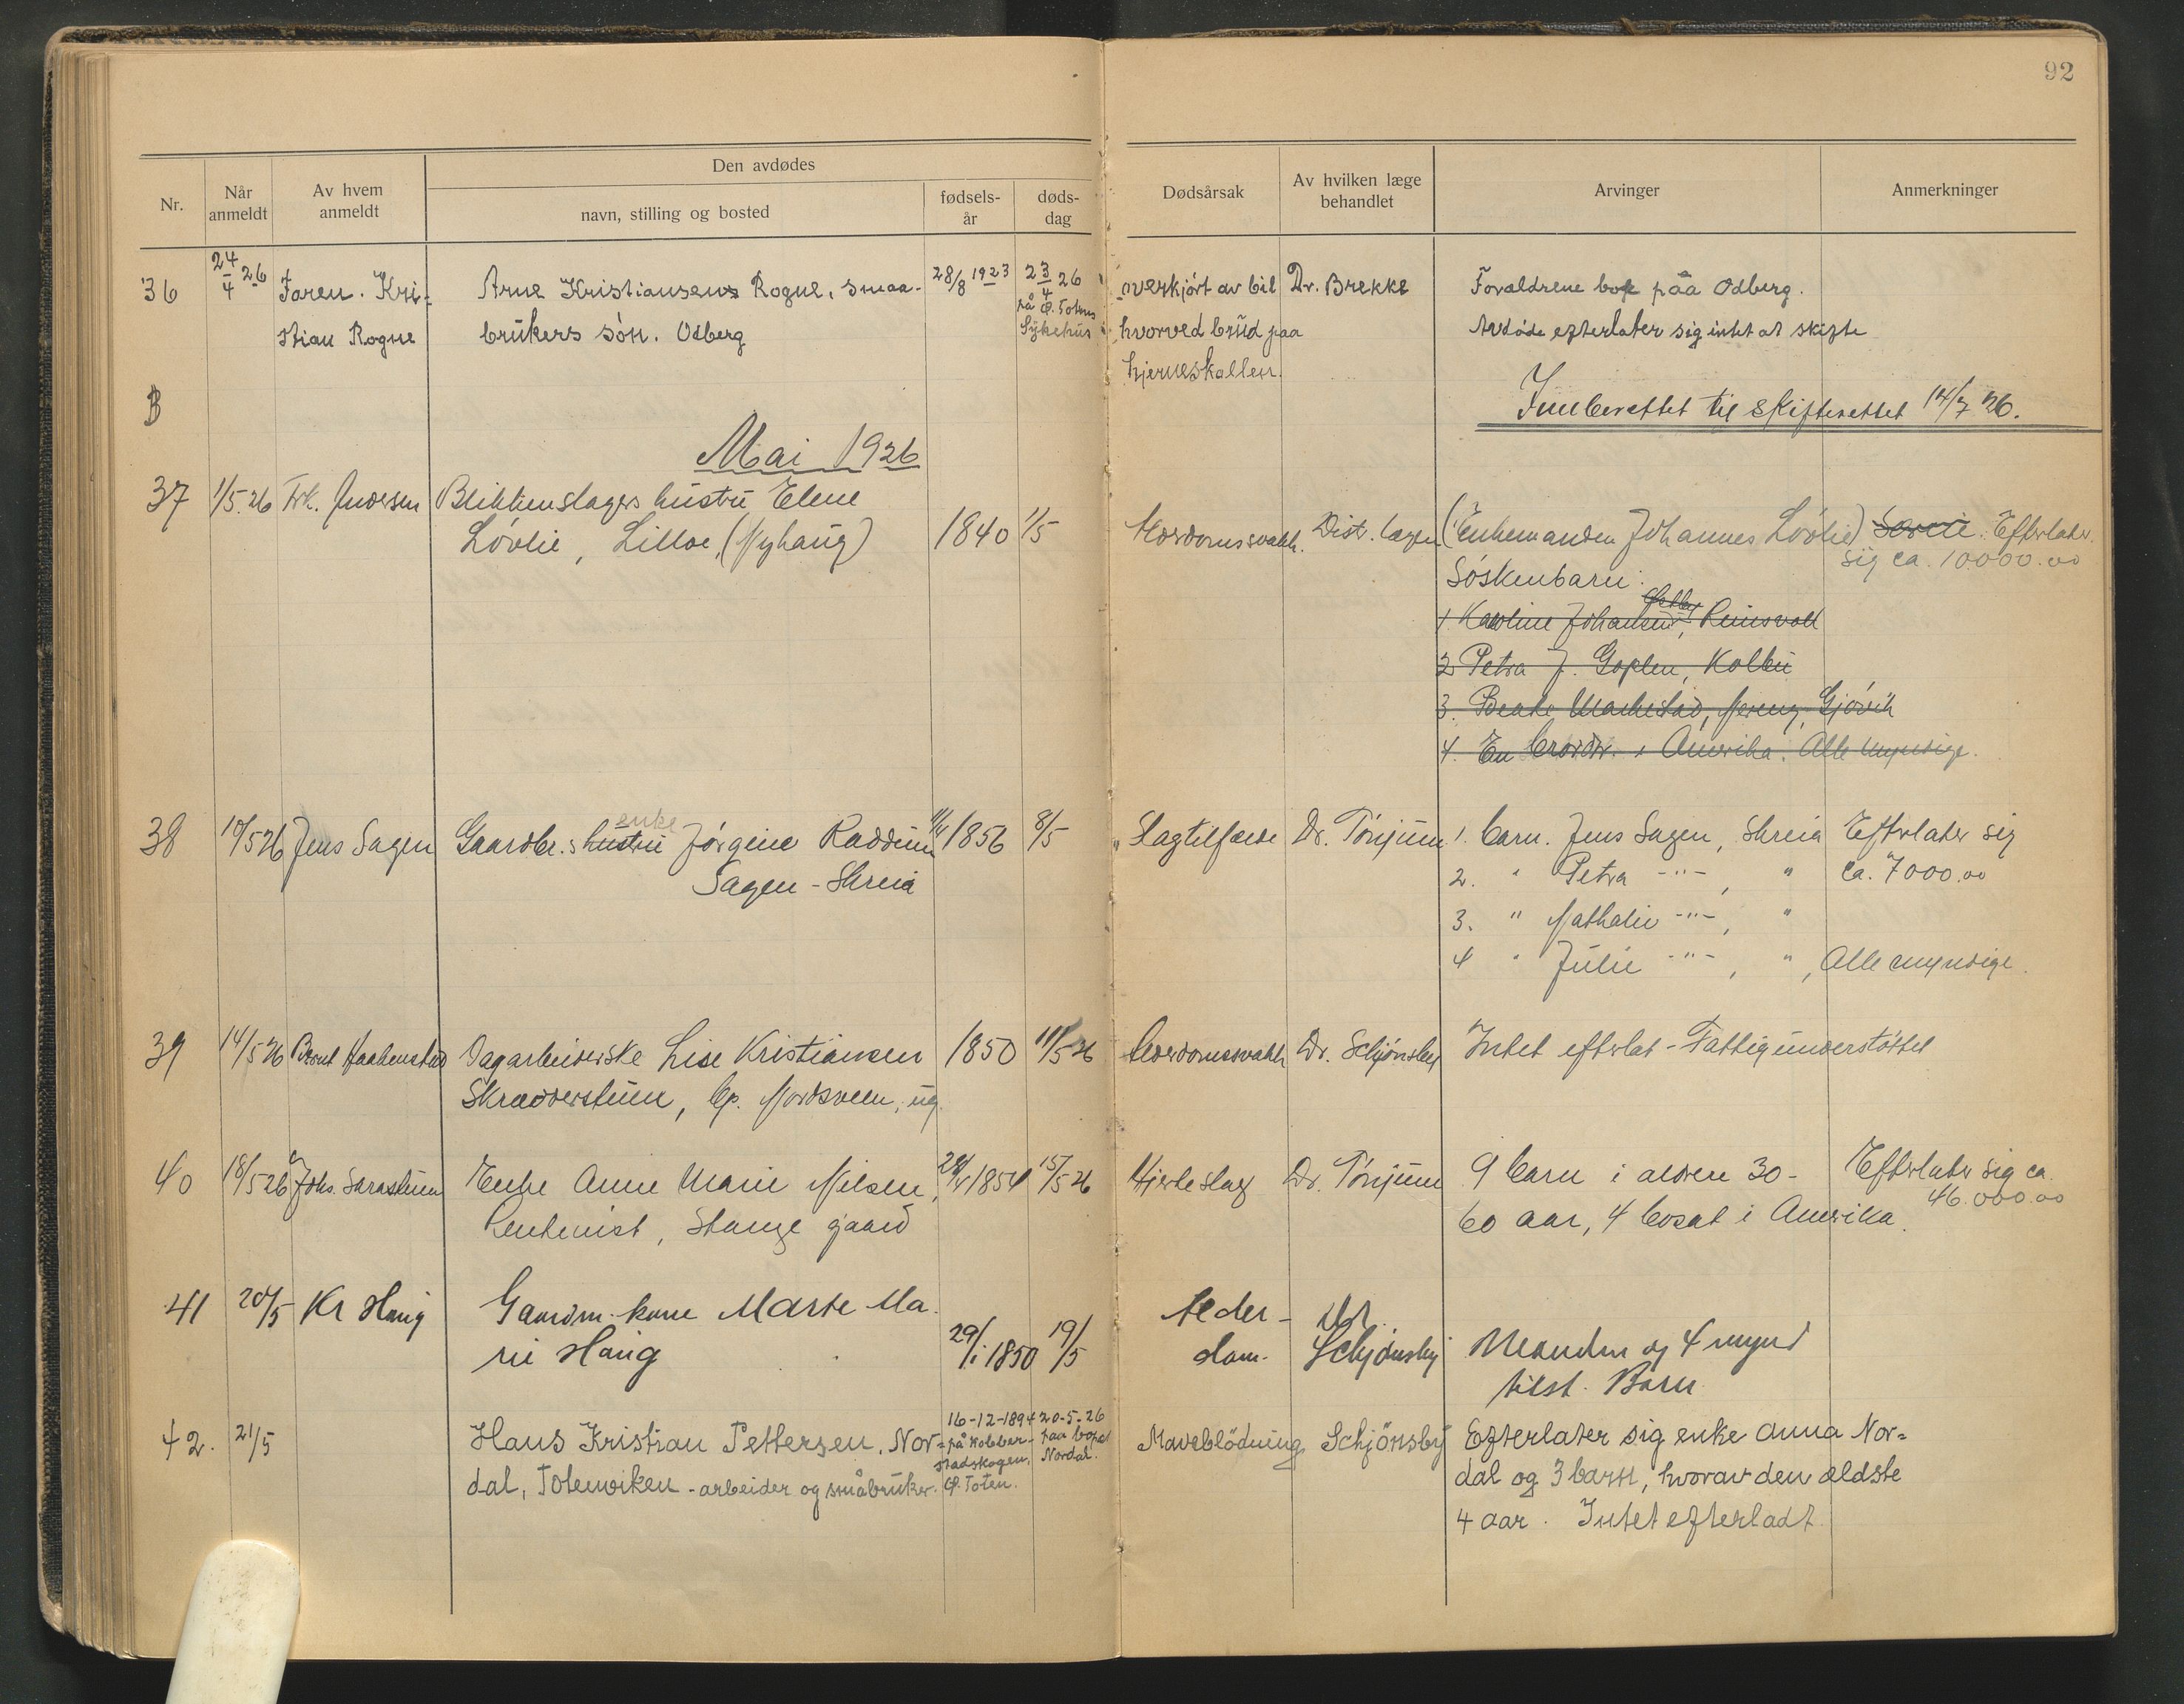 92
Den avdødes
Nr.
Når anmeldt
Av hvem anmeldt
navn, stilling og bosted
fødsels-år
døds-dag
Dødsårsak
Av hvilken læge behandlet
Arvinger
Anmerkninger
36 24/4 26 Faren. Kri- Arne Kristiansens Rogne, smaa- 28/8 1923 23/4 26 overkjørt av bil Dr. Brekke Forældrene bor påa Odberg.
stian Rogne brukers søn. Odberg på Ø. Totens Sykehus hvorved brud paa Avdøde efterlater sig intet at skifte
hjerneskallen.
Innberettet til skifteretten 14/7 26.
Mai 1926
37 1/5.26 Frk. Andersen Blikkenslagers hustru Elene
Løvlie, Lilloe, (Nyhaug) 1840 1/5 Alderdomssvakh. Distr. lægen (Enkemanden Johannes Løvlie) Efterlater
sig ca. 10000.00
Søskenbarn:
1. Karoline Johansen, Reinsvoll
2 Petra J. Goplen, Kolbu
3. Beate Markestad, Gjøvik
4. En brodr. i Amerika. Alle myndige.
38 10/5 26 Jens Sagen Gaardbr.s hustru enke Jørgine Raddum 1856 8/5 Slagtilfælde Dr. Tønjum 1. barn. Jens Sagen, Skreia Efterlater sig
Sagen - Skreia 2. " Petra -"-, " ca. 7000.00
3. " Nathalie -"-, "
4 " Julie -"-, ", Alle myndige.
39 14/5 26 Bernt Haakenstad Dagarbeiderske Lise Kristiansen 1850 11/5 26 Alderdomssvakh Dr. Schjønsby Intet efterlat - Fattigunderstøttet
Skrædderstuen, Nordsveen, ug.
40 18/5 26 Johs. Skrastuen Enke Anne Marie Nilsen, 1854 15/5 26 Hjerteslag Dr. Tønjum 9 barn i alderen 30- Efterlater sig ca.
Rentenist, Stange gaard 60 aar, 4 bosat i Amerika. 46.000.00
41 20/5 Kr Haug Gaardm. kone Marte Ma- Alder- Dr.
rie Haug 29/1 1850 19/5 dom. Schjønsby Manden og 4 mynd
tilst. Barn.
42. 21/5 Hans Kristian Pettersen, Nor- 16-12-1894 20-5-26 Maveblødning Schjønsby Efterlater sig enke Anna Nor-
på Kolbber- paa bopel
stadskogen, Nordal.
dal, Totenviken - arbeider og småbruker. Ø. Toten. dal og 3 barn, hvorav den ældste
4 aar. Intet efterladt.